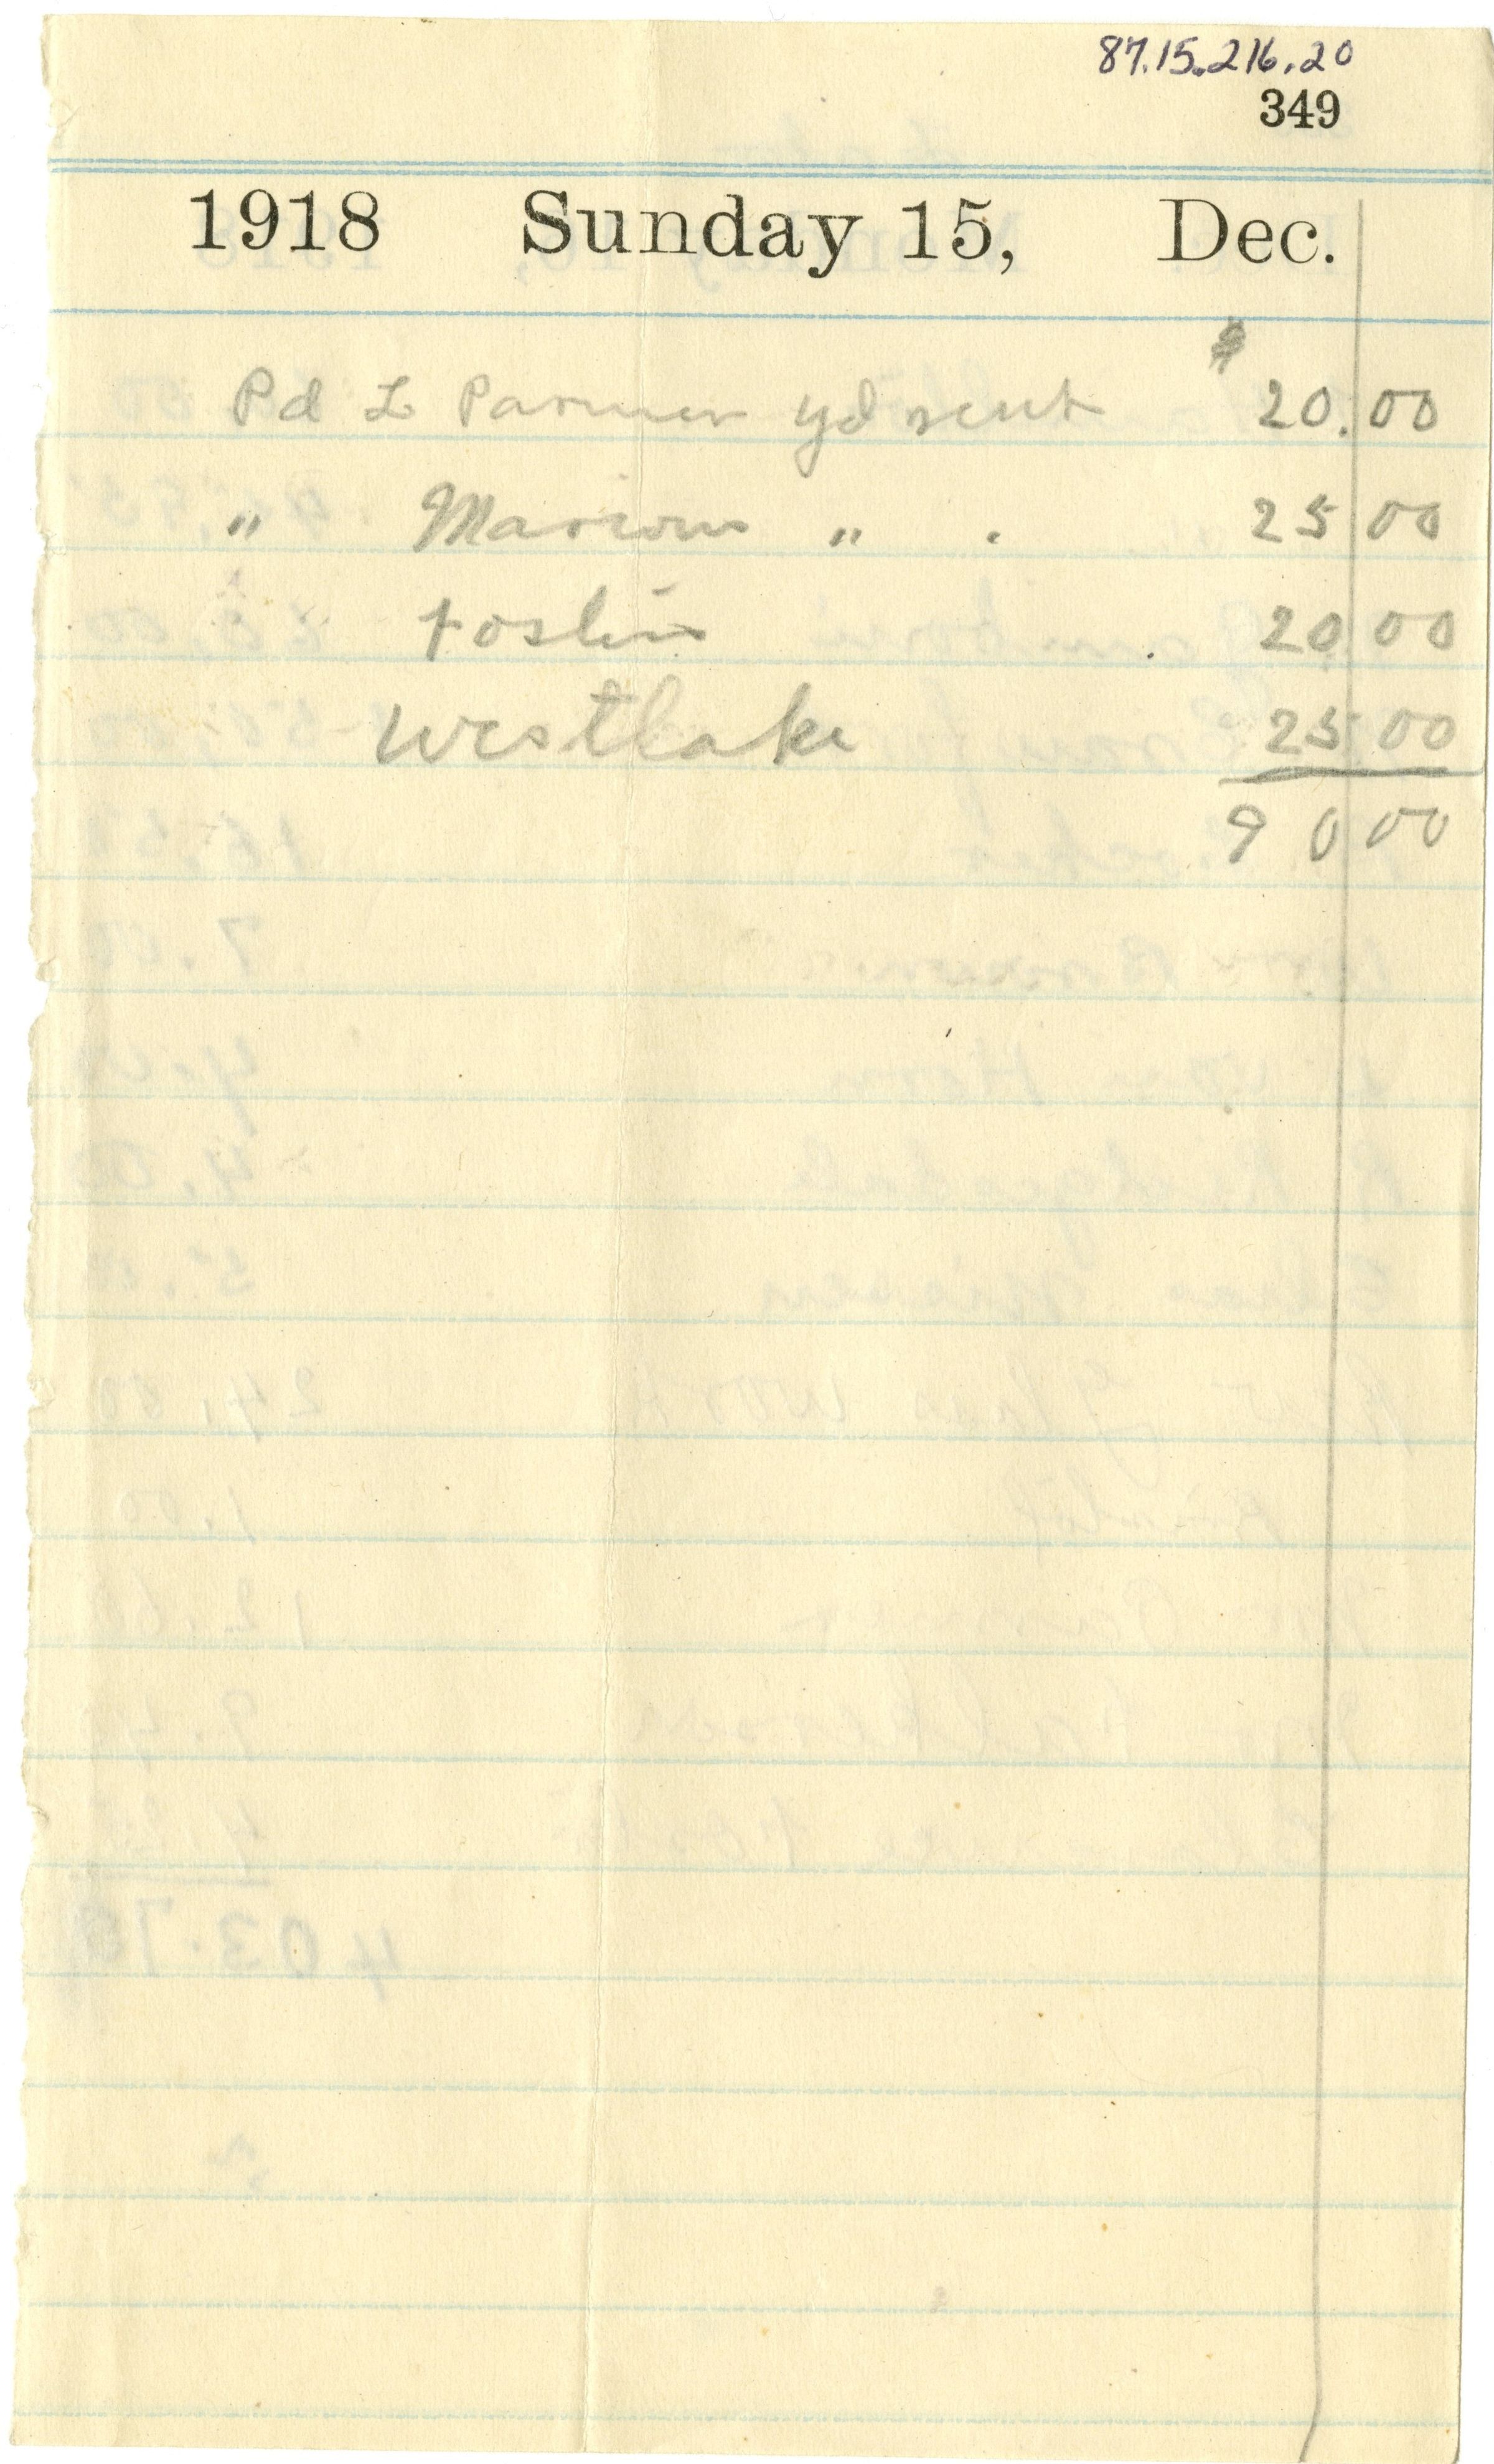 87.15.216.20
349
1918 Sunday 15, Dec.
$
Pd L Parmer yd rent 20.00
" Marion " . 25 00
Foslin . 20 00
Westlake 25 00
90 00